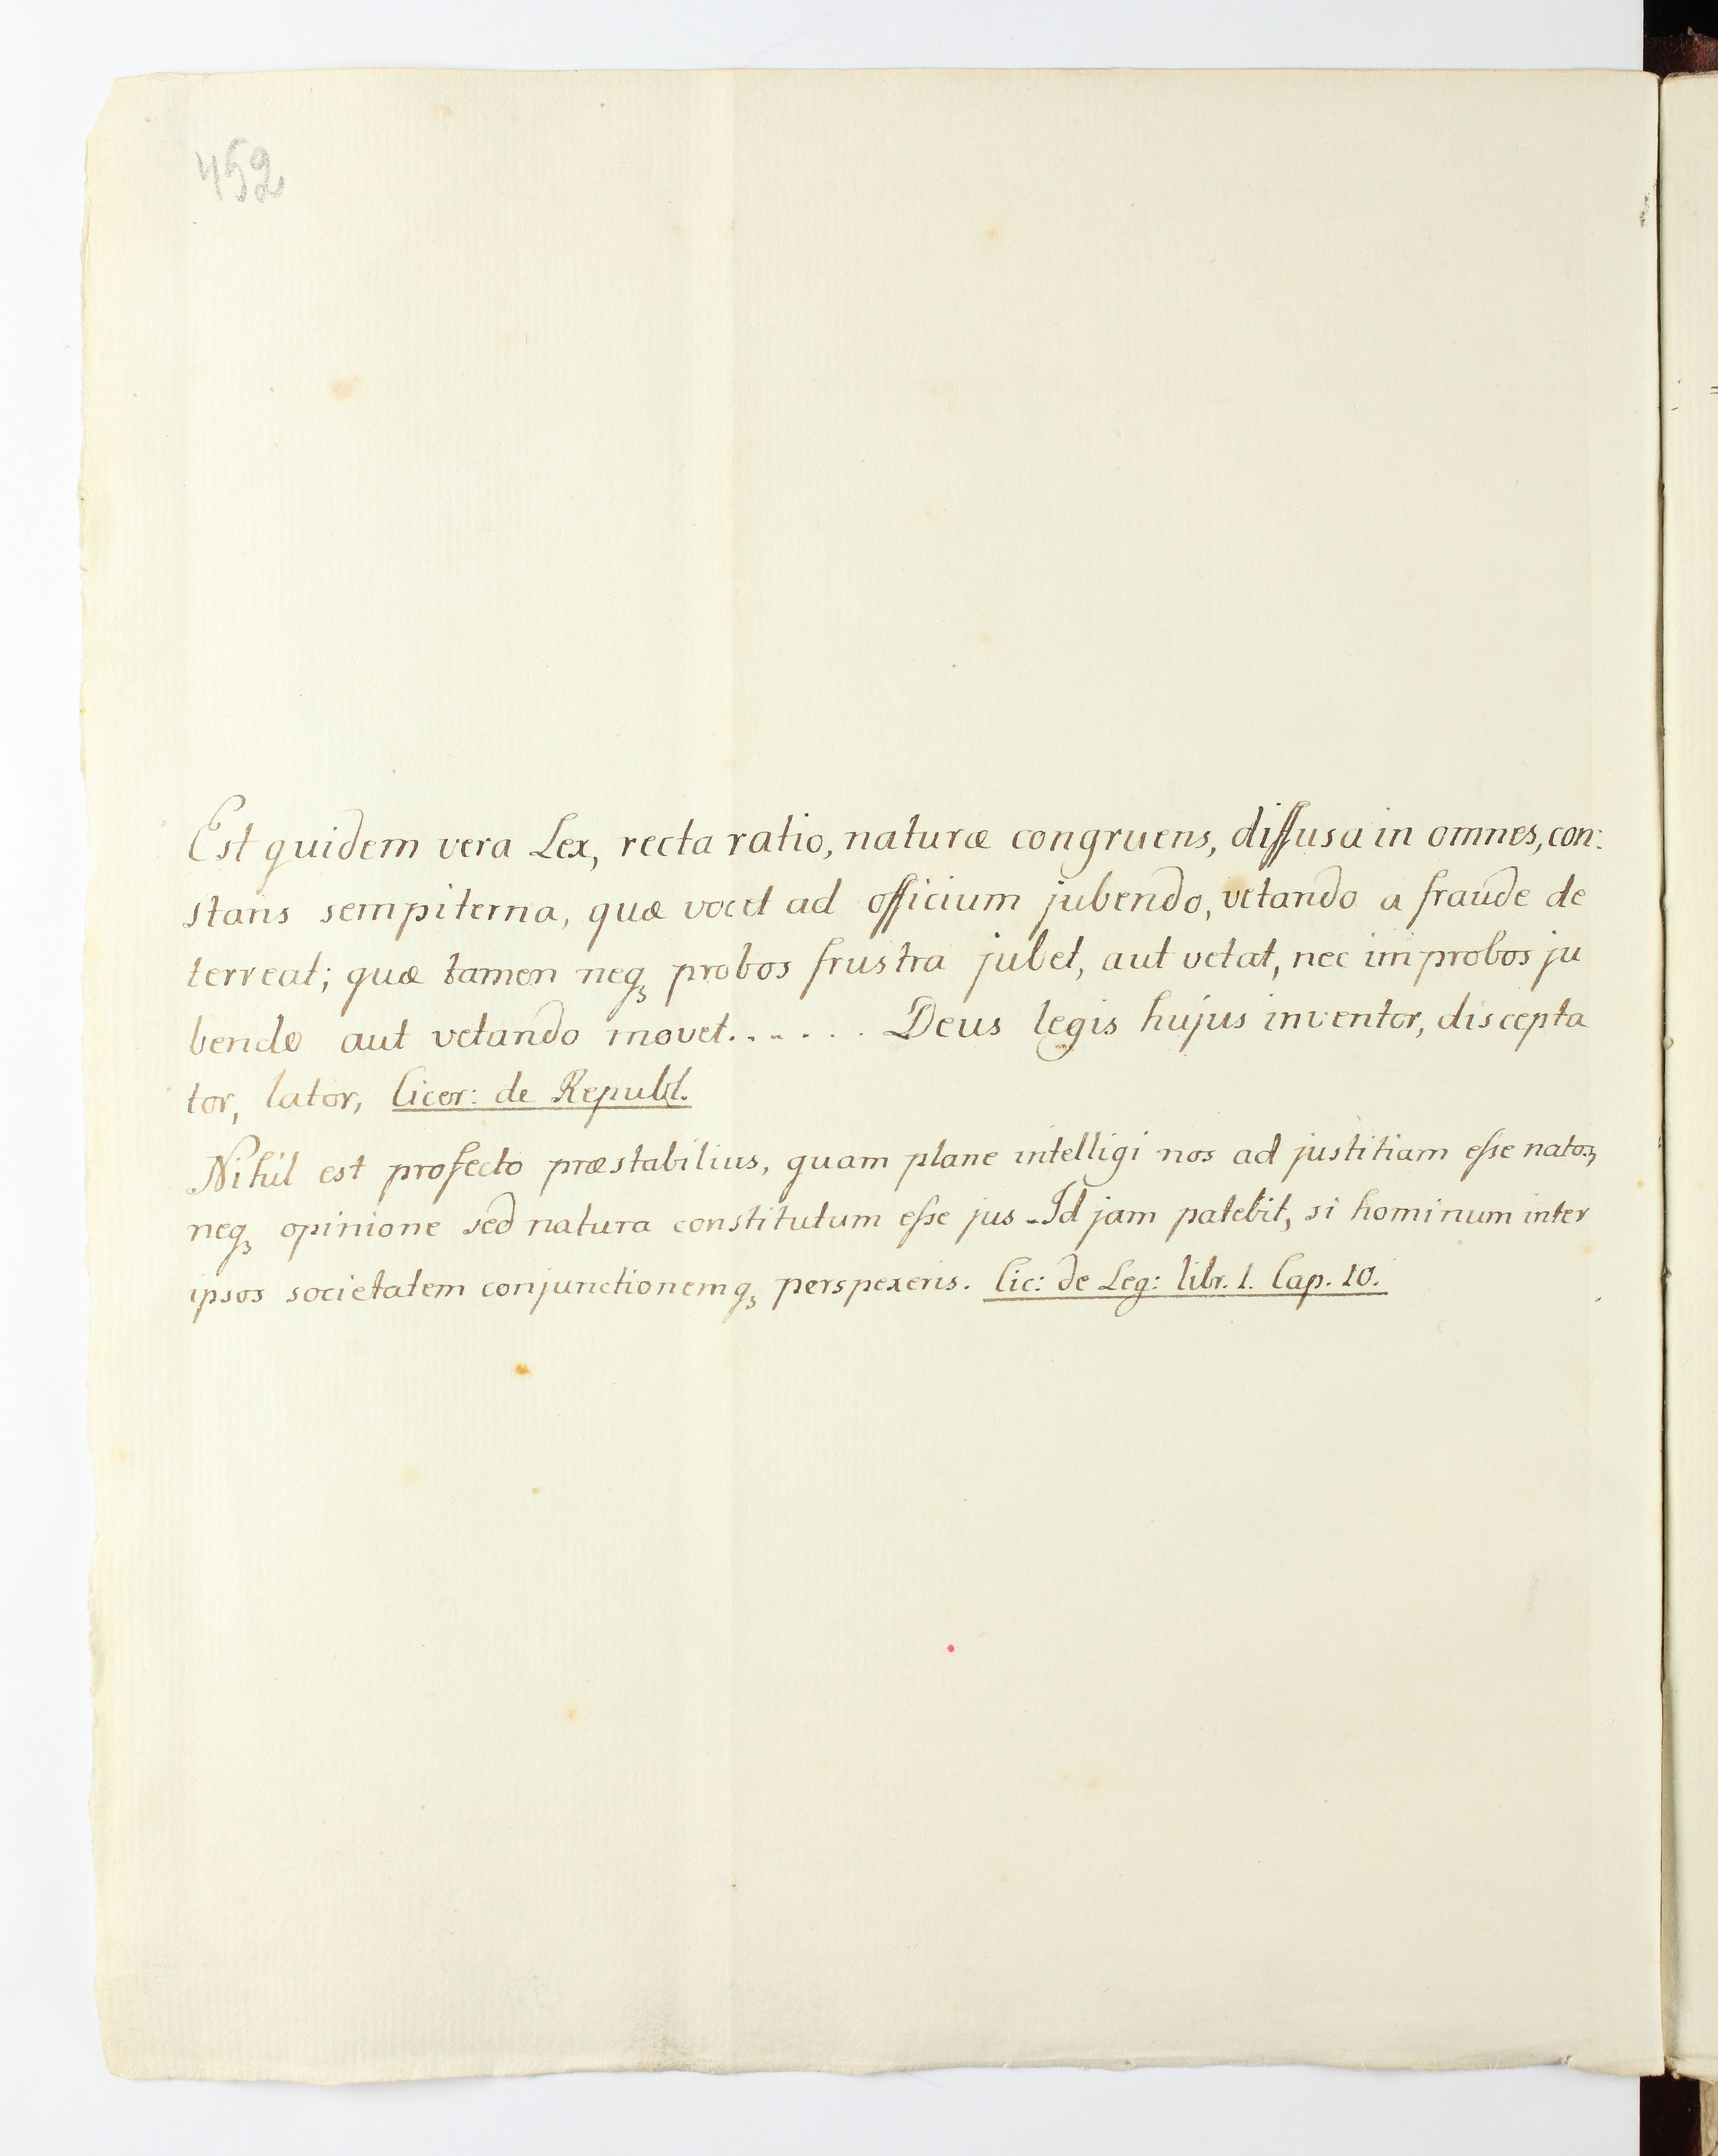 452
Est quidem vera Lex, recta ratio, naturæ congruens, diffusa in omnes, con:
stans sempiterna, quæ vocet ad officium jubendo, vetando a fraude de
terreat; quæ tamen neqꝫ probos frustra jubet, aut vetat, nec improbos ju
bendo aut vetando movet...... Deus legis hujus inventor, discepta
tor, lator, Cicer: de Republ.
Nihil est profecto præstabilius, quam plane intelligi nos ad justitiam eſse natos,
neqꝫ opinione sed natura constitutum eſse jus - Id jam patebit, si hominum inter
ipsos societatem conjunctionemqꝫ perspexeris. Cic: de Leg: libr. 1. Cap. 10.